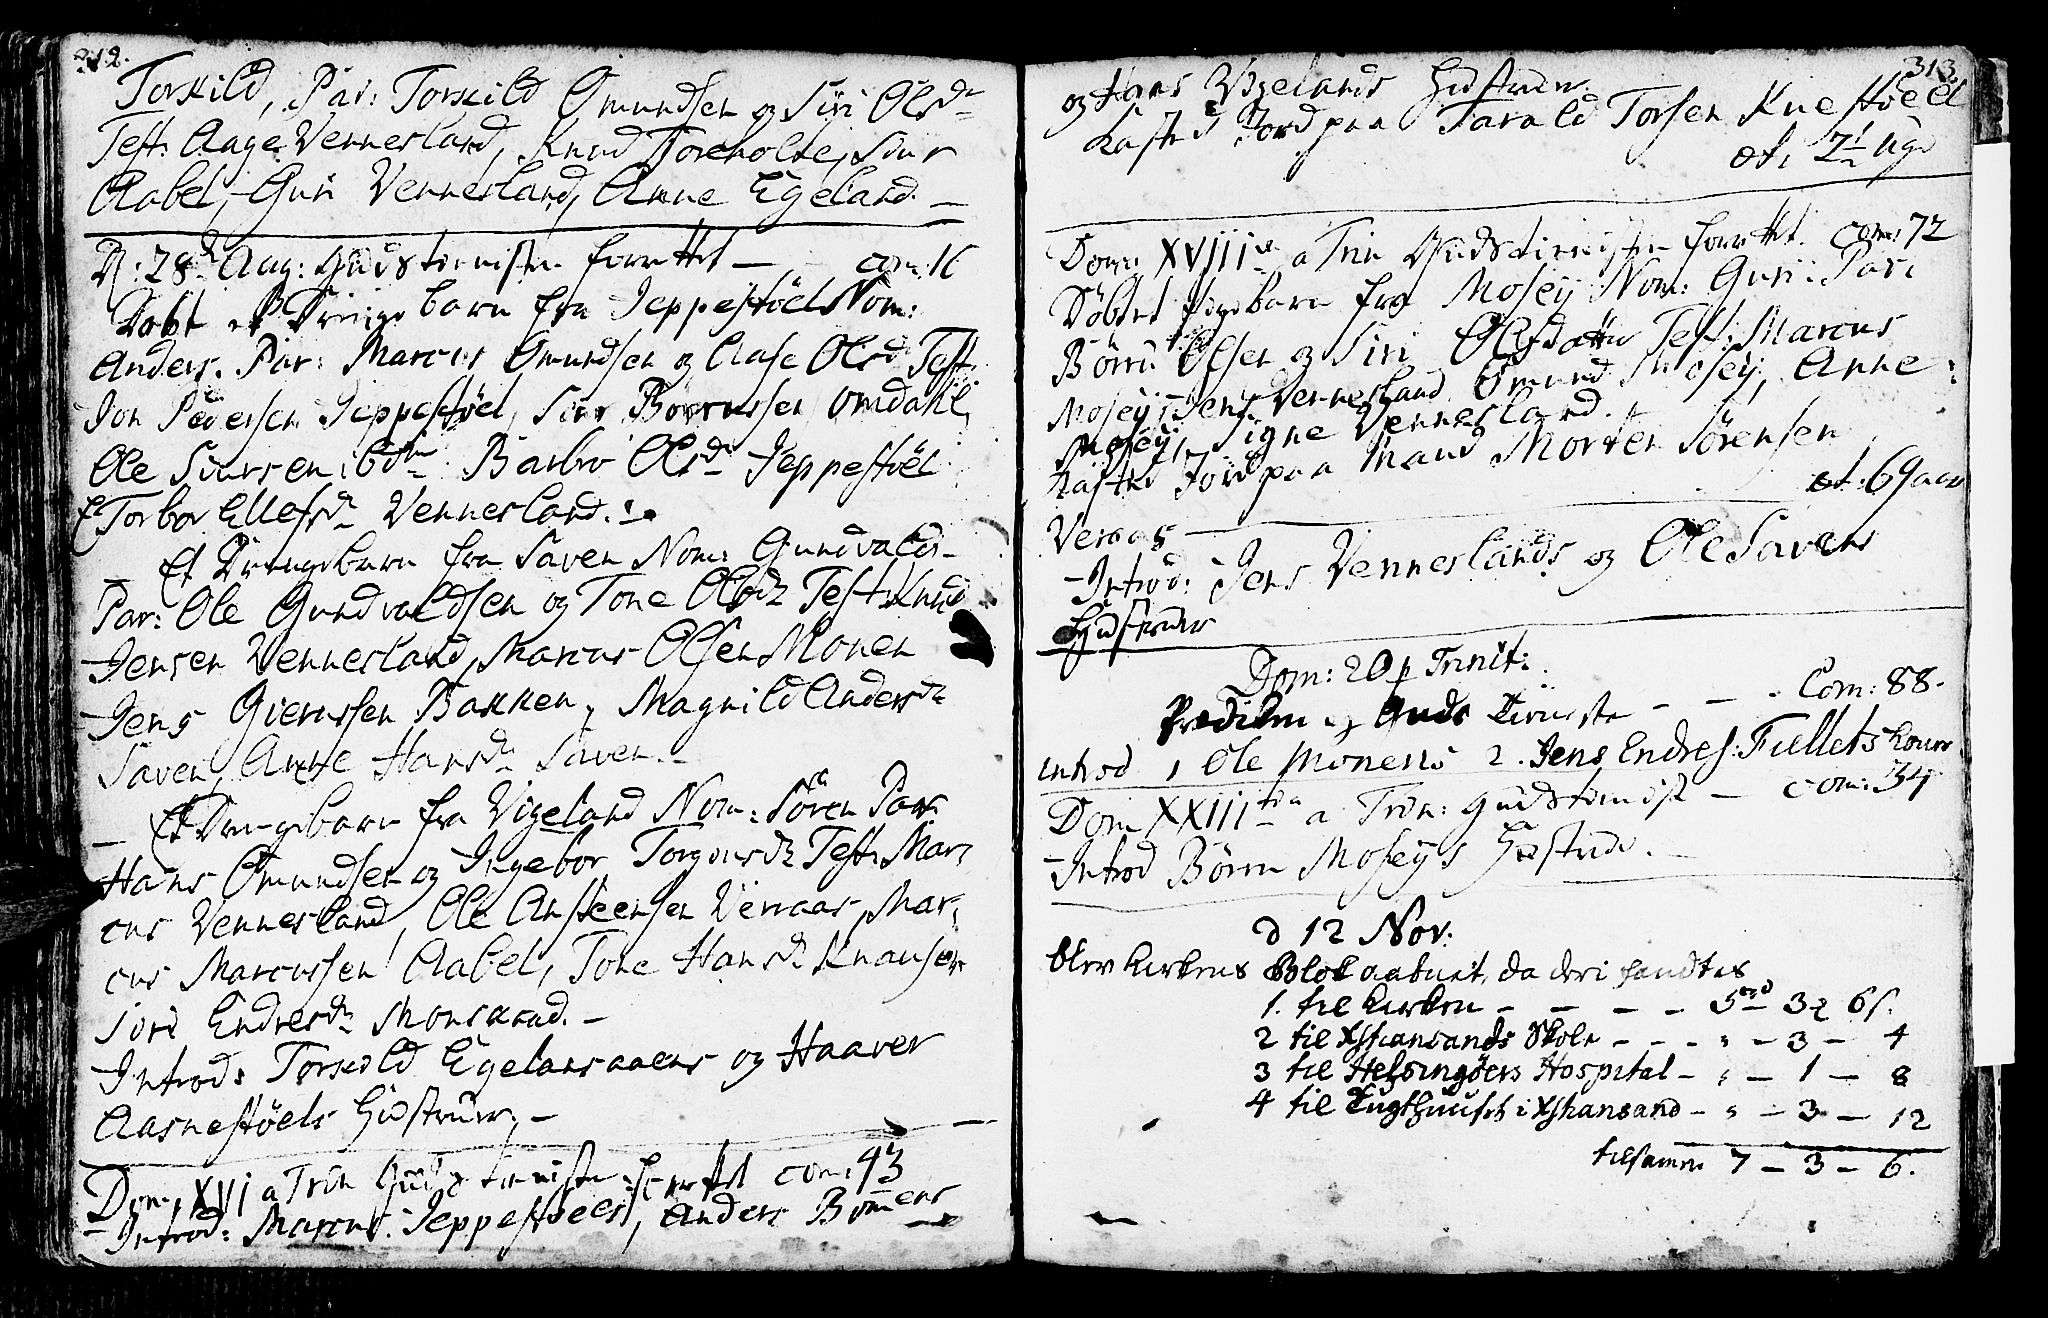 312.
Torkild, Par: Torkild Omundsen og Siri Olsdr
Test: Aage Vennesland, Knud Toreholte, Siur
Aabel, Guri Vennesland, Anne Egeland. —
D: 28d Aug: Gudstienisten forrettet — com: 16
Døbt et Drenge barn fra Jeppestøel Nom:
Anders. Par: Marcus Omundsen og Aase Olsdr Test:
Jon Pedersen Jeppestøel, Siur Børrussen Omdahl,
Ole Siursen ibdm Barbro Olsdr Jeppestøel
Torbor Ellefsdr Vennesland.
Et Drengebarn fra Saven Nom: Gundvald
Par: Ole Gundvaldsen og Tone Olsdr Test: Knud
Jensen Vennesland, Marcus Olsen Monen
Jens Gierussen Bakken, Magnild Andersdr
Saven, Anne Hansdr Saven. —
— Et Drengebarn fra Vigeland Nom: Søren Par:
Hans Omundsen og Ingebor Torgiersdr Test: Mar-
cus Vennesland, Ole Ansteensen Verraas, Mar-
cus Marcussen Aabel, Tone Hansdr Knausen
Siri Endresdr Monskred. —
Introd: Torkild Egelansaaens og Haaver
Aasnestøels Hustruer. —
Dom: XVI a Trin Gudstienisten forrettet com: 43
— Introd: Marcus Jeppestøels, Anders Bommens
313.
og Hans Vigelands Hustruer.
Kasted Jord paa Tarald Torsen Knestøel
æt: 2½ uge
Dom: XVIII a Trin Gudstienisten forrettet. com: 72
Døbt et Pigebarn fra Mosey Nom: Guri. Par:
Børru Olsen og Siri Olsdatter Test: Marcus
Mosey, Jens Vennesland Omund Mosey, Anne
Mosey, Signe Vennesland.
Kasted Jord paa Mand Morten Sørensen
Veraas — æt: 69 aar
— Introd: Jens Venneslands og Ole Savens
Hustruer
Dom: 20 p Trinit:
Prædiken og Guds Tieneste — — - Com: 88.
introd 1 Ole Monens 2. Jens Endres: Fiellets koner
Dom XXIII a Trin: Gudstienist — com: 34
— Introd Børru Moseys Hustrue. —
d 12 Nov:
blev Kirkens Blok aabnet, da deri fandtes
1. til Kirken — — — — 5rd 3 6s.
2 til Xstiansands Skole - - - " - 3 — 4
3 til Helsingøers Hospital - " — 1 — 8
4 til Tugthuuset i Xstiansand - " — 3 — 12
tilsamen 7 — 3 — 6.